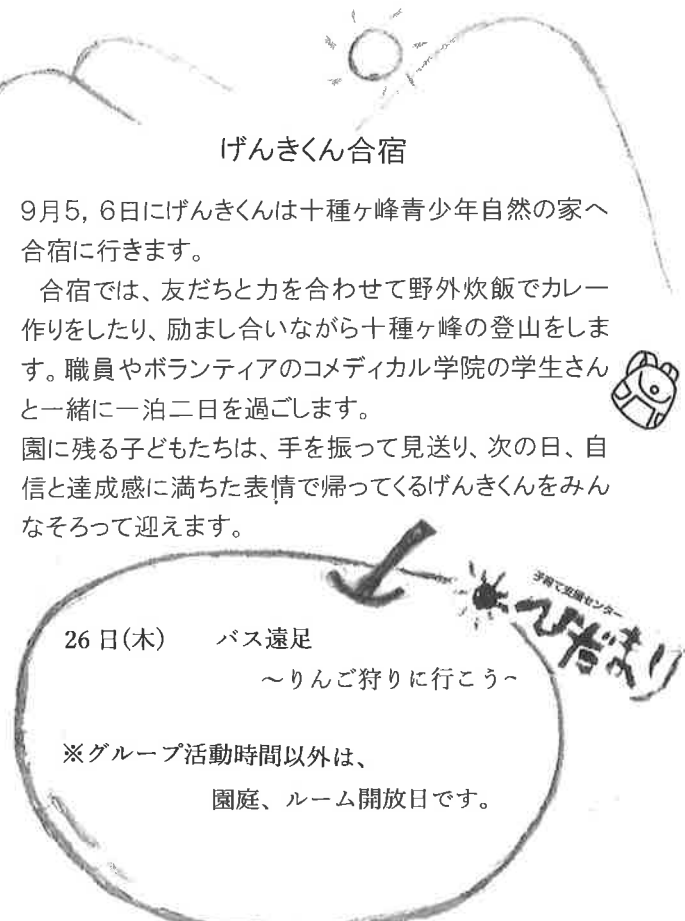 げんきくん合宿
9月5，6日にげんきくんは十種ヶ峰青少年自然の家へ
合宿に行きます。
合宿では、友だちと力を合わせて野外炊飯でカレー
作りをしたり、励まし合いながら十種ヶ峰の登山をしま
す。職員やボランティアのコメディカル学院の学生さん
と一緒に一泊二日を過ごします。
園に残る子どもたちは、手を振って見送り、次の日、自
信と達成感に満ちた表情で帰ってくるげんきくんをみん
なそろって迎えます。
子育て支援センター
26日(木)　　バス遠足
～りんご狩りに行こう~
※グループ活動時間以外は、
園庭、ルーム開放日です。